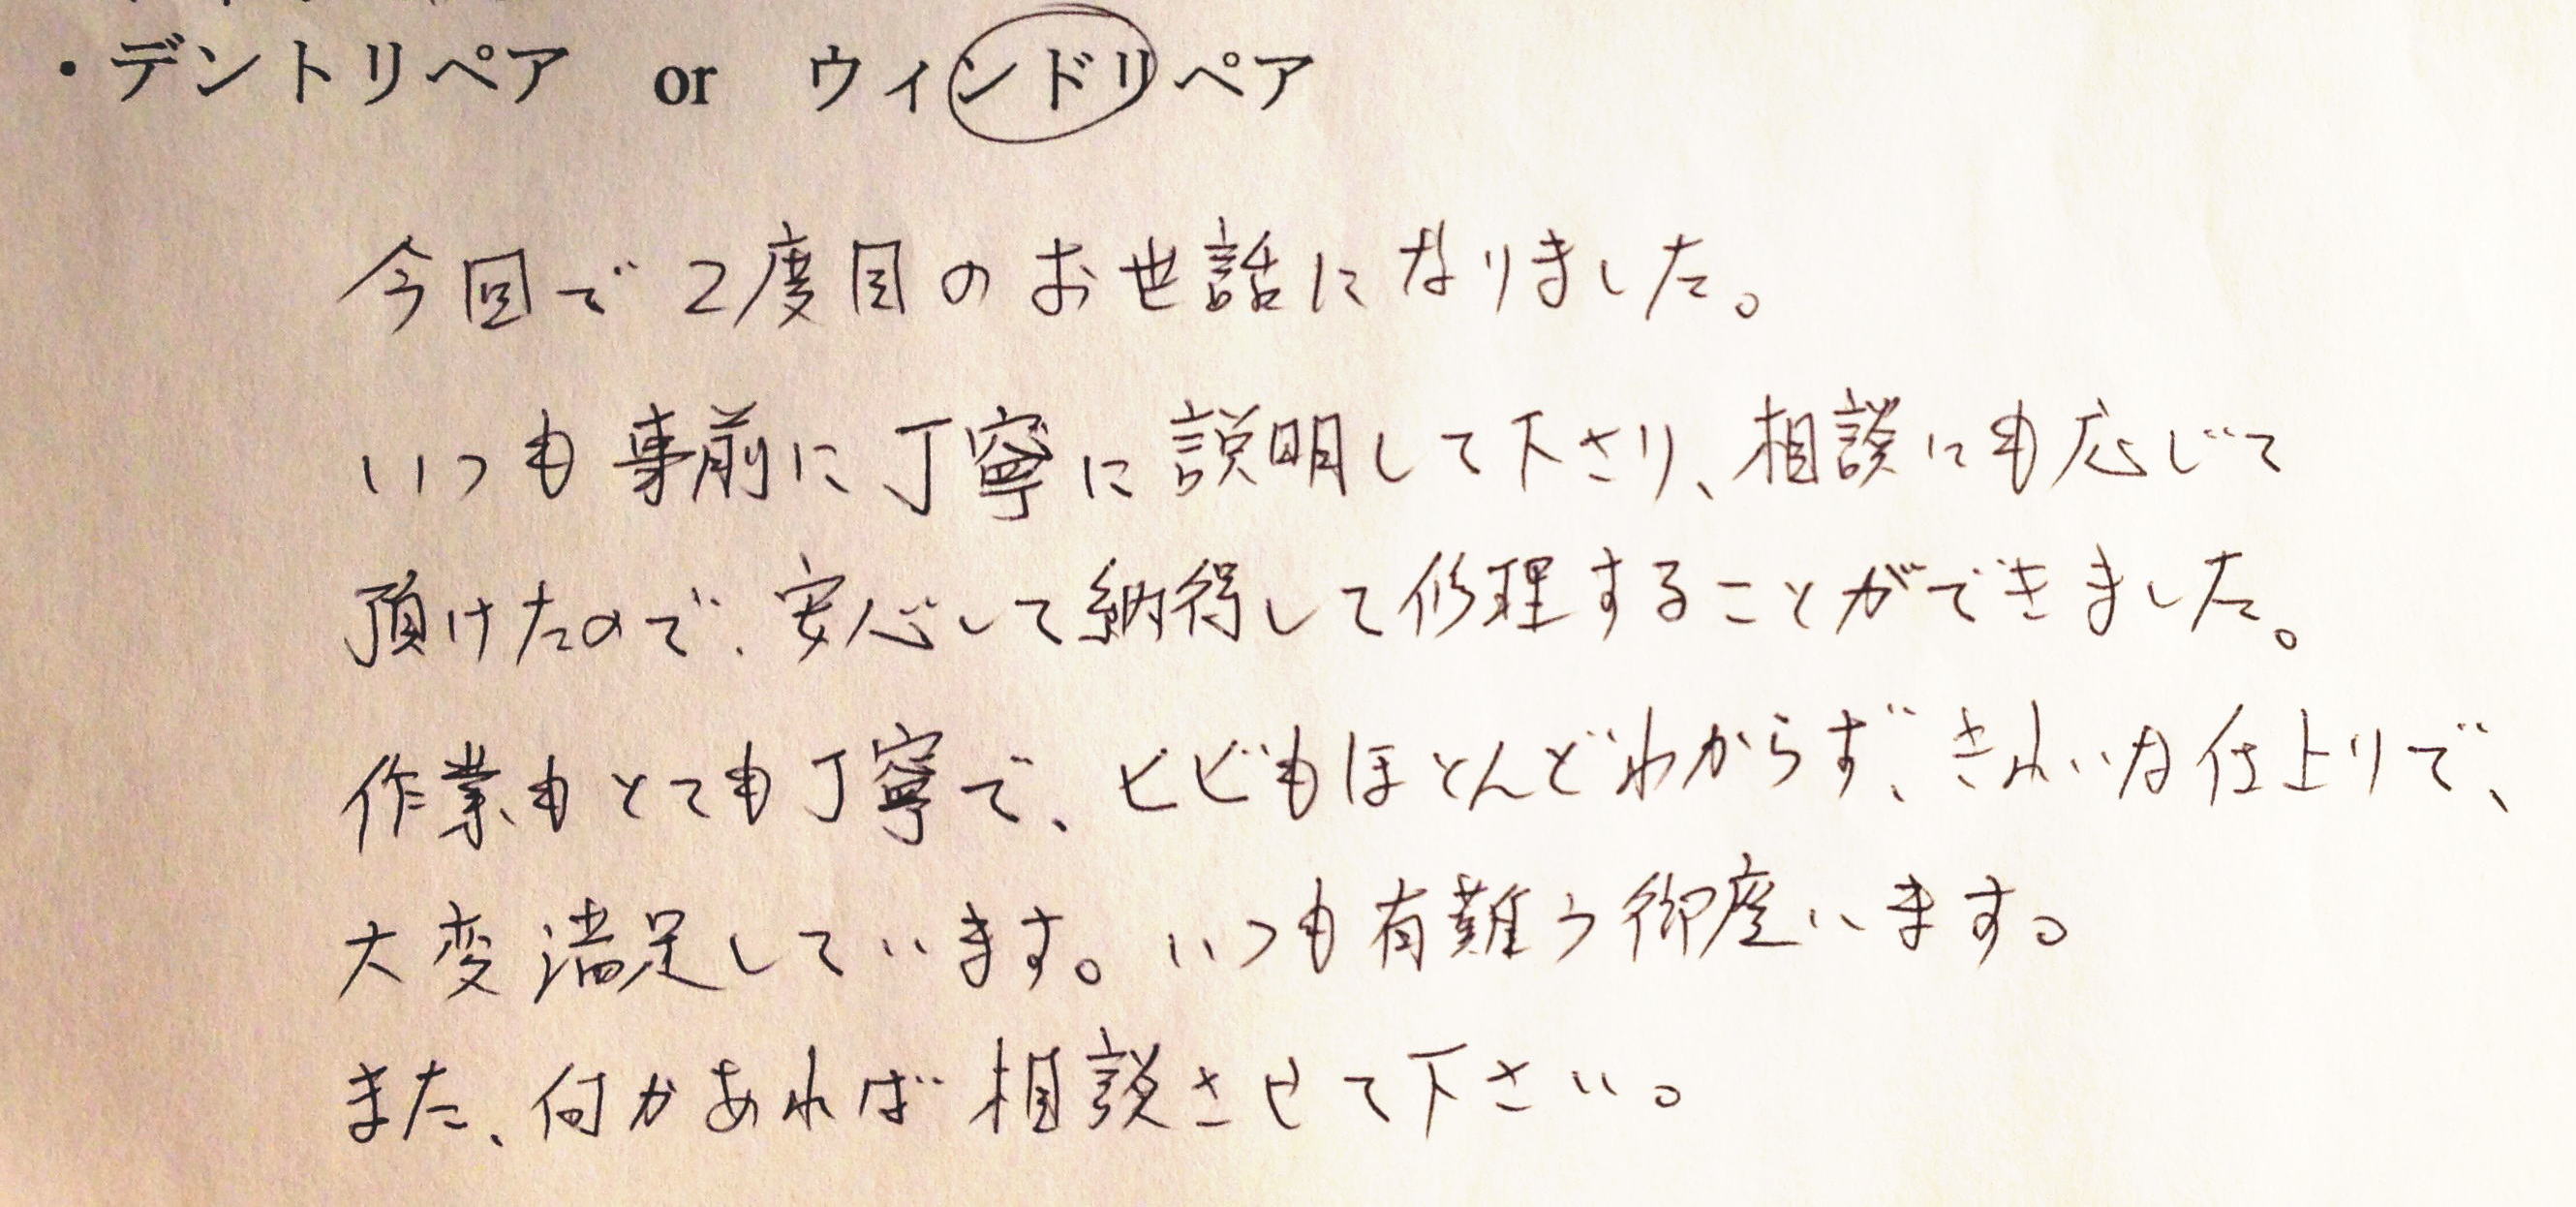 ・デントリペア　or　ウィンドリペア
今回で2度目のお世話になりました。
いつも事前に丁寧に説明して下さり、相談にも応じて
頂けたので、安心して納得して修理することができました。
作業もとても丁寧で、ヒビもほとんどわからず、きれいな仕上りで、
大変満足しています。いつも有難う御座います。
また、何かあれば相談させて下さい。